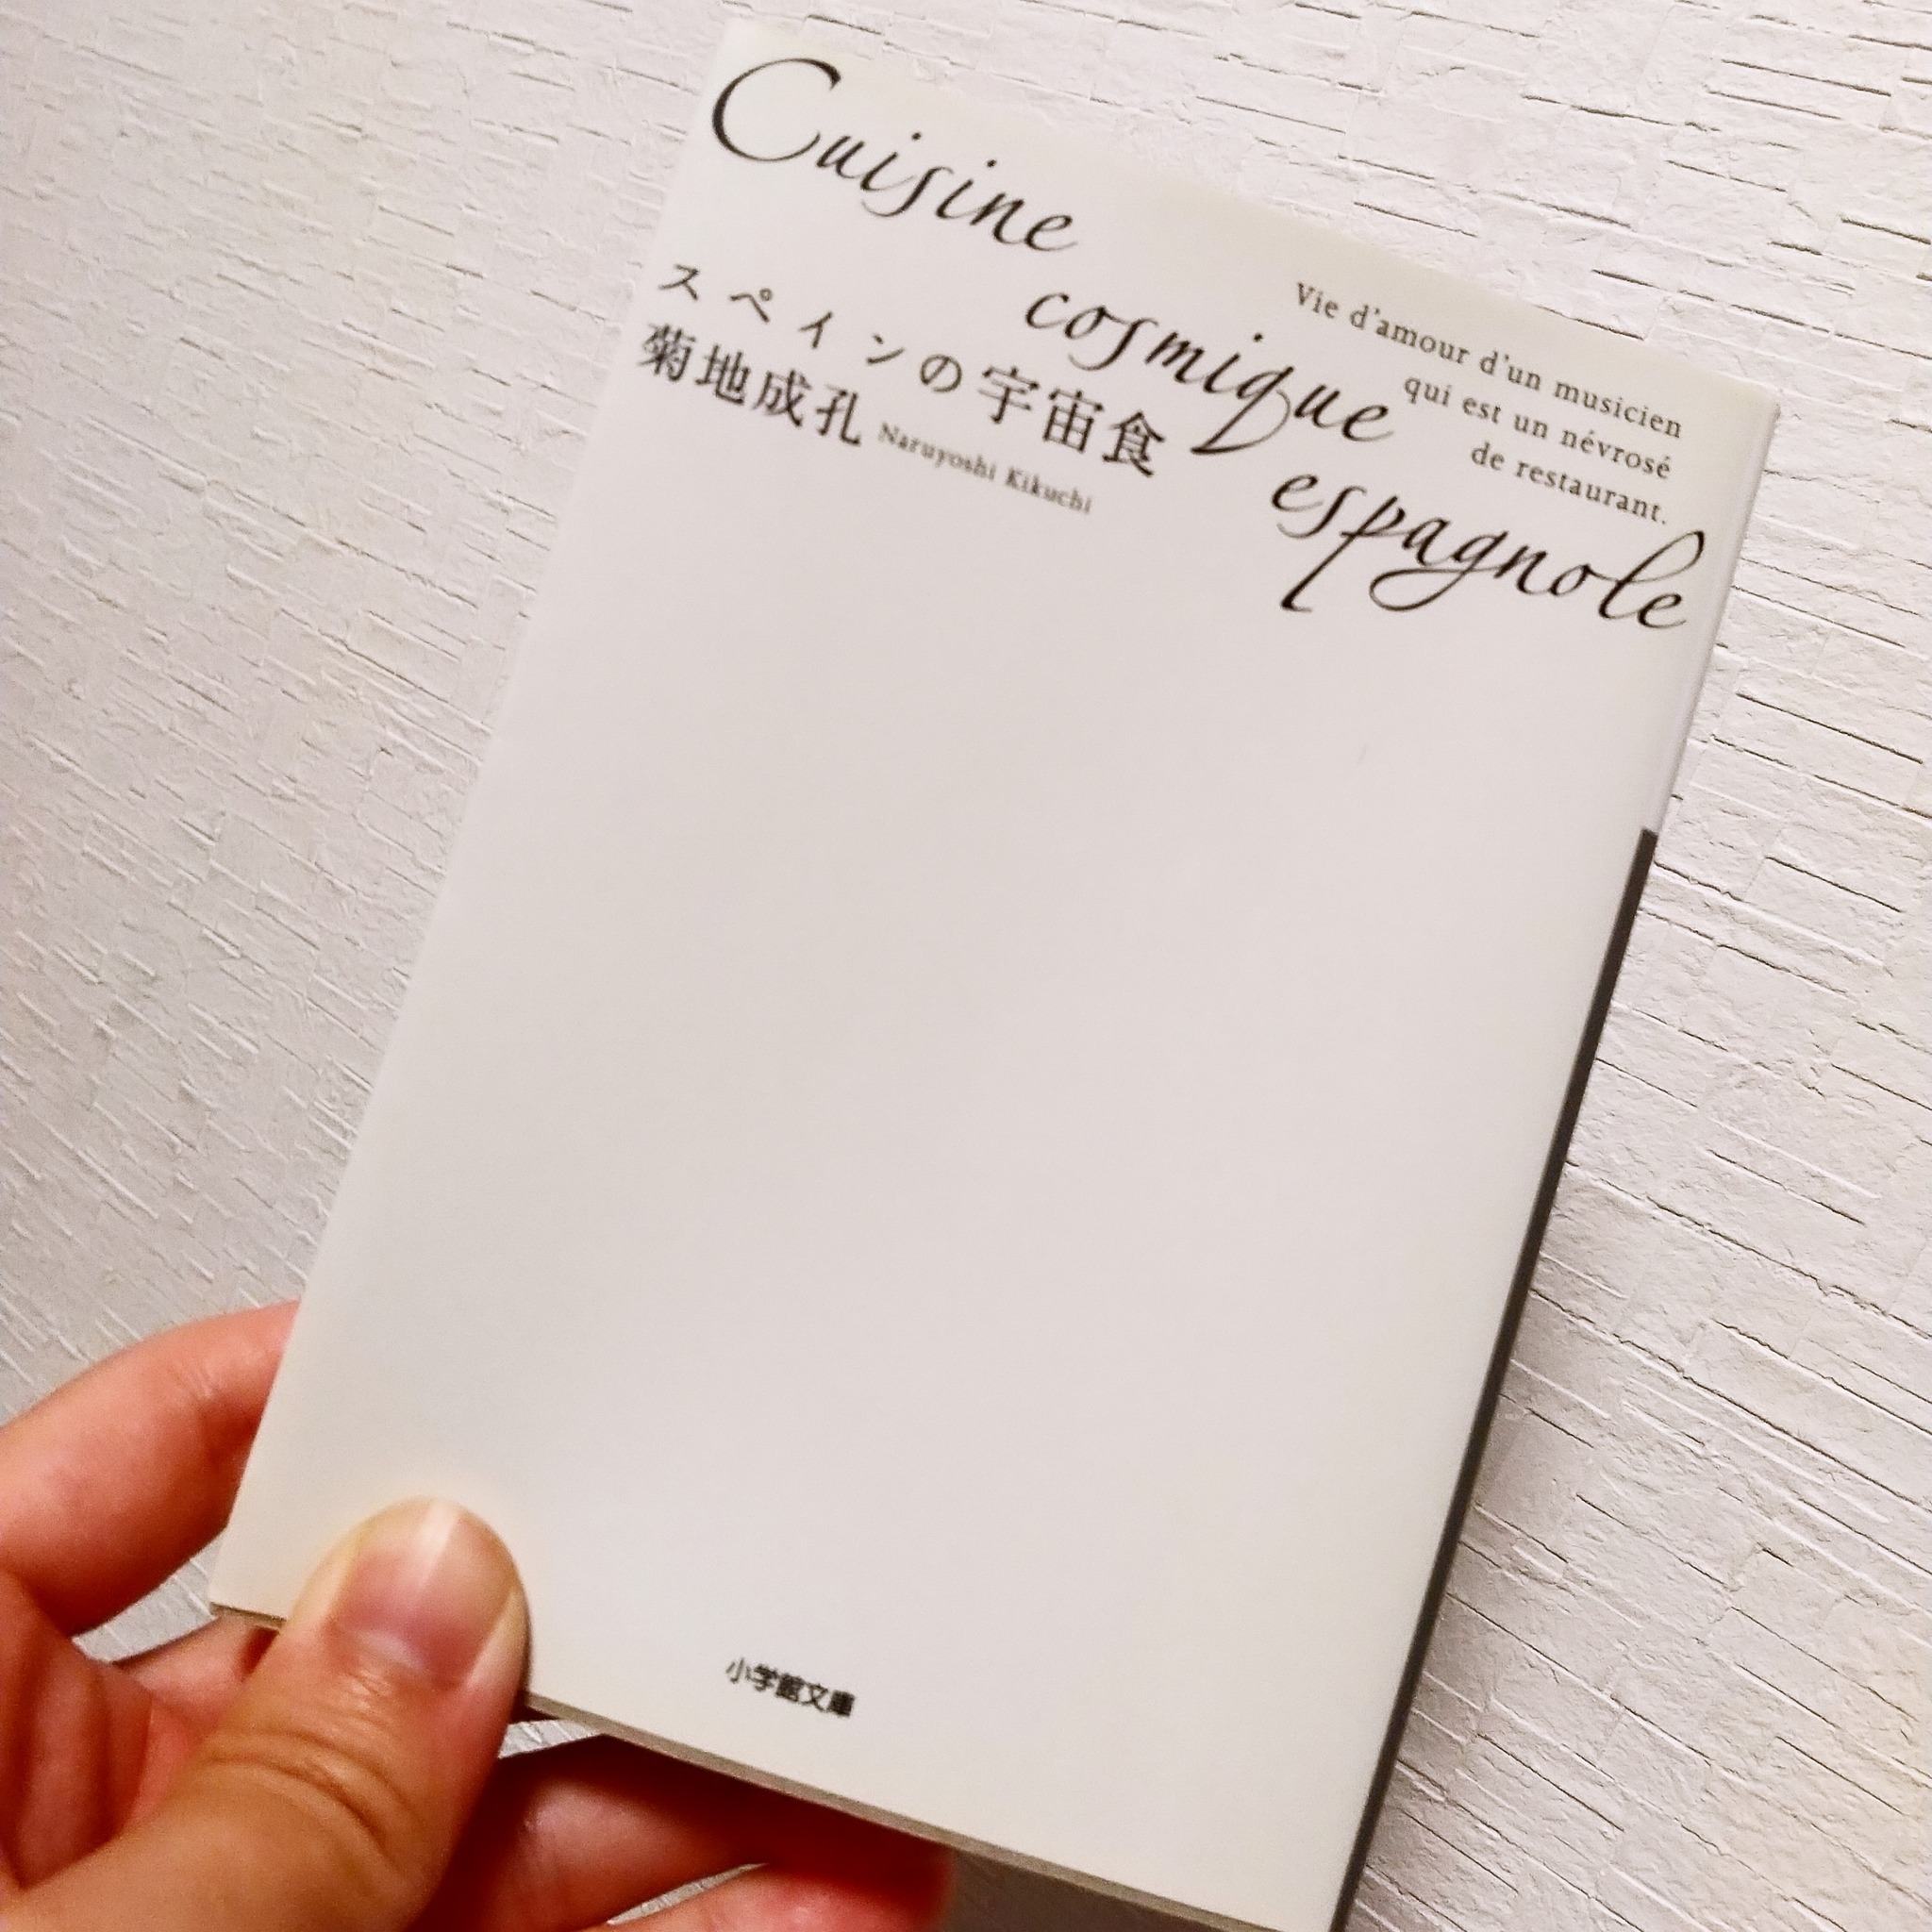 Cuisine
cosmique
espagnole
Vie d'amour d'un musicien
qui est un névrosé
de restaurant.
スペインの宇宙食
菊地成孔 Naruyoshi Kikuchi
小学館文庫